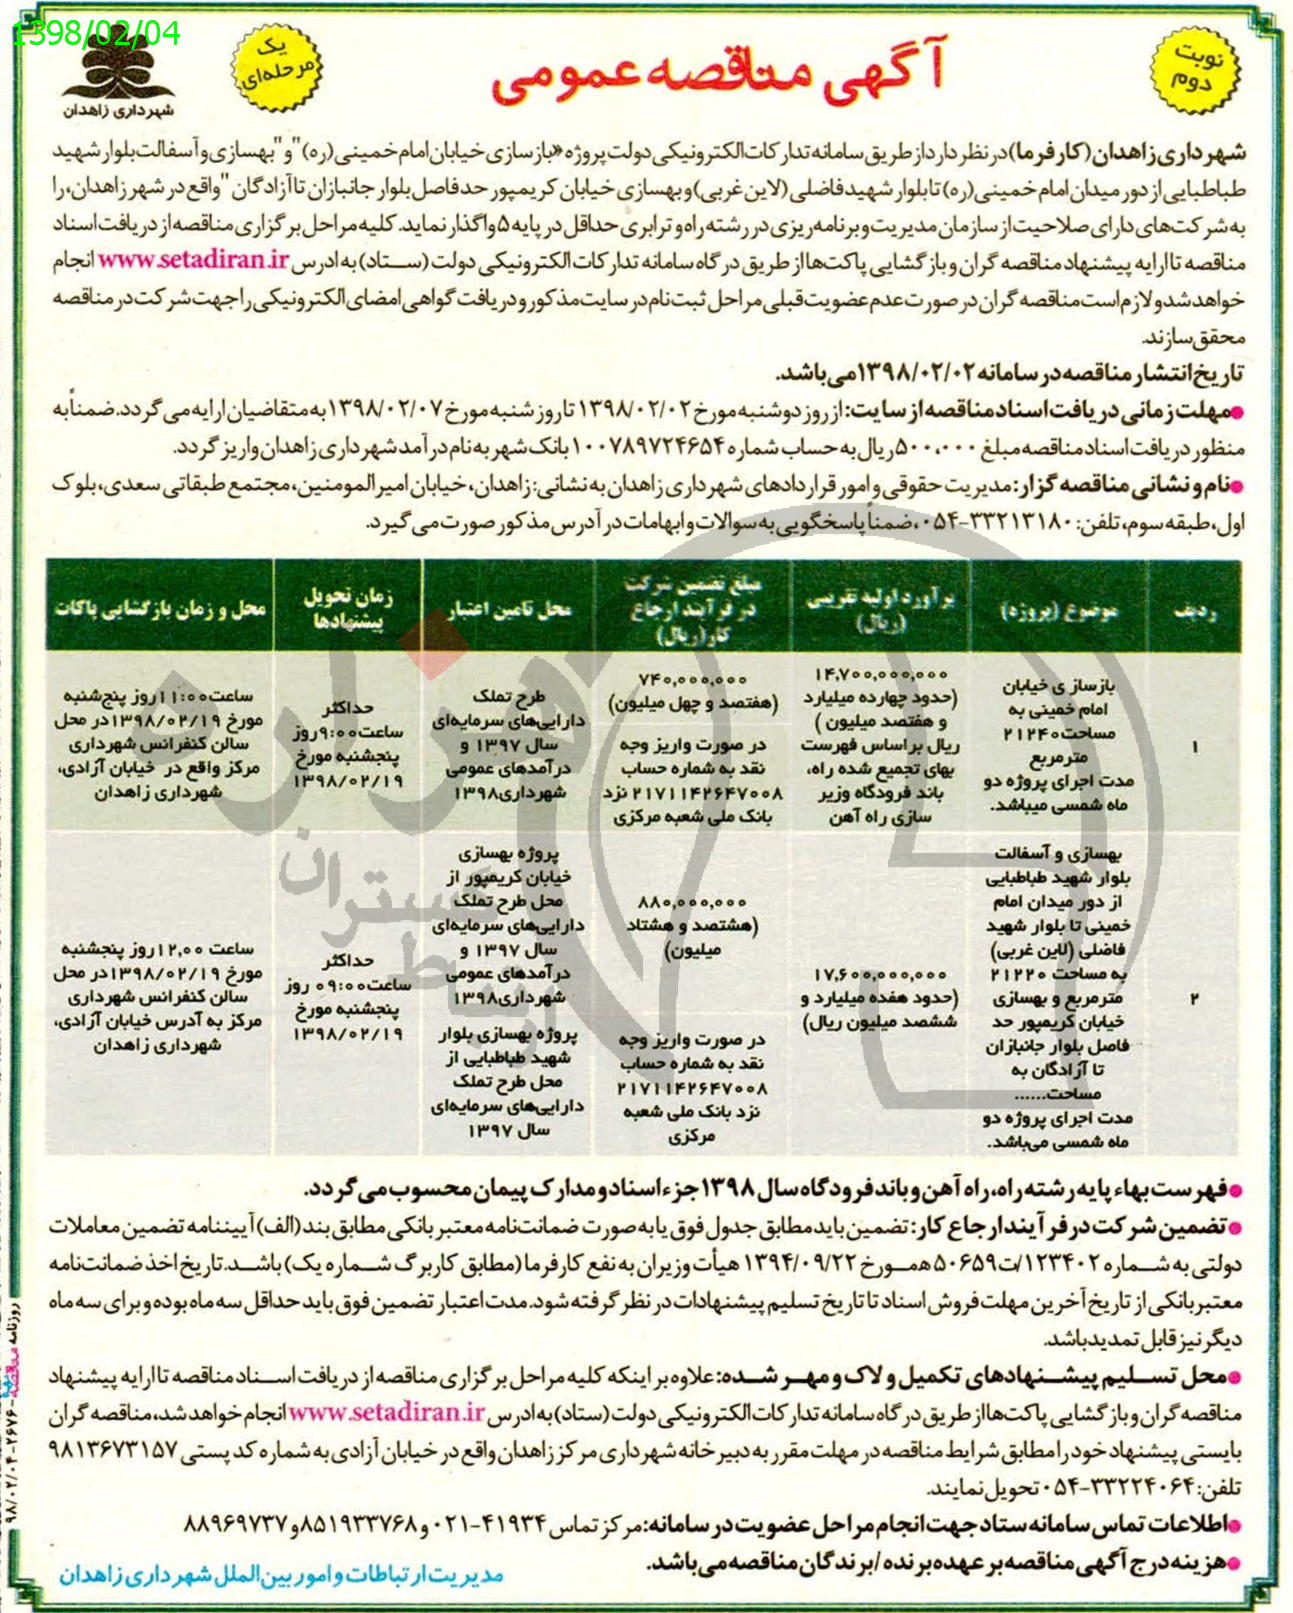 1398/02/04
شهرداری زاهدان
یک
مرحله‌ای
آگهی مناقصه عمومی
نوبت
دوم
شهرداری زاهدان (کارفرما) در نظر دارد از طریق سامانه تدارکات الکترونیکی دولت پروژه «بازسازی خیابان امام خمینی (ره) "و" بهسازی و آسفالت بلوار شهید
طباطبایی از دور میدان امام خمینی (ره) تا بلوار شهید فاضلی (لاین غربی) و بهسازی خیابان کریمپور حدفاصل بلوار جانبازان تا آزادگان" واقع در شهر زاهدان، را
به شرکت‌های دارای صلاحیت از سازمان مدیریت و برنامه‌ریزی در رشته راه و ترابری حداقل در پایه ۵ واگذار نماید. کلیه مراحل برگزاری مناقصه از دریافت اسناد
مناقصه تا ارایه پیشنهاد مناقصه گران و بازگشایی پاکت‌ها از طریق درگاه سامانه تدارکات الکترونیکی دولت (ستاد) به ادرس www.setadiran.ir انجام
خواهد شد و لازم است مناقصه گران در صورت عدم عضویت قبلی مراحل ثبت نام در سایت مذکور و دریافت گواهی امضای الکترونیکی را جهت شرکت در مناقصه
محقق سازند.
تاریخ انتشار مناقصه در سامانه ۱۳۹۸/۰۲/۰۲ می باشد.
●مهلت زمانی دریافت اسناد مناقصه از سایت: از روز دوشنبه مورخ ۱۳۹۸/۰۲/۰۲ تا روز شنبه مورخ ۱۳۹۸/۰۲/۰۷ به متقاضیان ارایه می گردد. ضمناً به
منظور دریافت اسناد مناقصه مبلغ ۵۰۰،۰۰۰ ریال به حساب شماره ۱۰۰۷۸۹۷۲۴۶۵۴ بانک شهر به نام درآمد شهرداری زاهدان واریز گردد.
●نام و نشانی مناقصه گزار: مدیریت حقوقی و امور قراردادهای شهرداری زاهدان به نشانی: زاهدان، خیابان امیرالمومنین، مجتمع طبقاتی سعدی، بلوک
اول، طبقه سوم، تلفن: ۳۳۲۱۳۱۸۰-۰۵۴، ضمناً پاسخگویی به سوالات و ابهامات در آدرس مذکور صورت می گیرد.
ردیف
موضوع (پروژه)
برآورد اولیه تقریبی
(ریال)
مبلغ تضمین شرکت
در فرآیند ارجاع
کار(ریال)
محل تامین اعتبار
زمان تحویل
پیشنهادها
محل و زمان بازگشایی پاکات
۱
بازسازی خیابان
امام خمینی به
مساحت ۲۱۲۴۰
مترمربع
مدت اجرای پروژه دو
ماه شمسی میباشد.
۱۴,۷۰۰,۰۰۰,۰۰۰
(حدود چهارده میلیارد
و هفتصد میلیون )
ریال براساس فهرست
بهای تجمیع شده راه،
باند فرودگاه وزیر
سازی راه آهن
۷۴۰,۰۰۰,۰۰۰
(هفتصد و چهل میلیون)
در صورت واریز وجه
نقد به شماره حساب
۲۱۷۱۱۴۲۶۴۷۰۰۸ نزد
بانک ملی شعبه مرکزی
طرح تملک
دارایی‌های سرمایه‌ای
سال ۱۳۹۷ و
درآمدهای عمومی
شهرداری۱۳۹۸
حداکثر
ساعت۹:۰۰روز
پنجشنبه مورخ
۱۳۹۸/۰۲/۱۹
ساعت۱۱:۰۰روز پنج‌شنبه
مورخ ۱۳۹۸/۰۲/۱۹در محل
سالن کنفرانس شهرداری
مرکز واقع در خیابان آزادی،
شهرداری زاهدان
۲
بهسازی و آسفالت
بلوار شهید طباطبایی
از دور میدان امام
خمینی تا بلوار شهید
فاضلی (لاین غربی)
به مساحت ۲۱۲۲۰
مترمربع و بهسازی
خیابان کریمپور حد
فاصل بلوار جانبازان
تا آزادگان به
مساحت......
مدت اجرای پروژه دو
ماه شمسی می‌باشد.
۱۷,۶۰۰,۰۰۰,۰۰۰
(حدود هفده میلیارد و
ششصد میلیون ریال)
۸۸۰,۰۰۰,۰۰۰
(هشتصد و هشتاد
میلیون)
در صورت واریز وجه
نقد به شماره حساب
۲۱۷۱۱۴۲۶۴۷۰۰۸
نزد بانک ملی شعبه
مرکزی
پروژه بهسازی
خیابان کریمپور از
محل طرح تملک
دارایی‌های سرمایه‌ای
سال ۱۳۹۷ و
درآمدهای عمومی
شهرداری۱۳۹۸
پروژه بهسازی بلوار
شهید طباطبایی از
محل طرح تملک
دارایی‌های سرمایه‌ای
سال ۱۳۹۷
حداکثر
ساعت۰۹:۰۰ روز
پنجشنبه مورخ
۱۳۹۸/۰۲/۱۹
ساعت ۱۲,۰۰روز پنجشنبه
مورخ ۱۳۹۸/۰۲/۱۹در محل
سالن کنفرانس شهرداری
مرکز به آدرس خیابان آزادی،
شهرداری زاهدان
●فهرست بهاء پایه رشته راه، راه آهن و باند فرودگاه سال ۱۳۹۸ جزء اسناد و مدارک پیمان محسوب می گردد.
●تضمین شرکت در فرآیند ارجاع کار: تضمین باید مطابق جدول فوق یا به صورت ضمانت‌نامه معتبر بانکی مطابق بند (الف) آییننامه تضمین معاملات
دولتی به شماره ۱۲۳۴۰۲/ت۵۰۶۵۹ه مورخ ۱۳۹۴/۰۹/۲۲ هیأت وزیران به نفع کارفرما (مطابق کاربرگ شماره یک) باشد. تاریخ اخذ ضمانت‌نامه
معتبر بانکی از تاریخ آخرین مهلت فروش اسناد تا تاریخ تسلیم پیشنهادات در نظر گرفته شود. مدت اعتبار تضمین فوق باید حداقل سه ماه بوده و برای سه ماه
دیگر نیز قابل تمدید باشد.
●محل تسلیم پیشنهادهای تکمیل و لاک و مهر شده: علاوه بر اینکه کلیه مراحل برگزاری مناقصه از دریافت اسناد مناقصه تا ارایه پیشنهاد
مناقصه گران و بازگشایی پاکت‌ها از طریق درگاه سامانه تدارکات الکترونیکی دولت (ستاد) به ادرس www.setadiran.ir انجام خواهد شد، مناقصه گران
بایستی پیشنهاد خود را مطابق شرایط مناقصه در مهلت مقرر به دبیرخانه شهرداری مرکز زاهدان واقع در خیابان آزادی به شماره کد پستی ۹۸۱۳۶۷۳۱۵۷
تلفن: ۳۳۲۲۴۰۶۴-۰۵۴ تحویل نمایند.
●اطلاعات تماس سامانه ستاد جهت انجام مراحل عضویت در سامانه: مرکز تماس ۴۱۹۳۴-۰۲۱ و ۸۵۱۹۳۳۷۶۸ و ۸۸۹۶۹۷۳۷
●هزینه درج آگهی مناقصه بر عهده برنده / برندگان مناقصه می باشد.
مدیریت ارتباطات و امور بین‌الملل شهرداری زاهدان
روزنامه مناقصه - ۲۶۷۶ - ۹۸/۰۲/۰۴